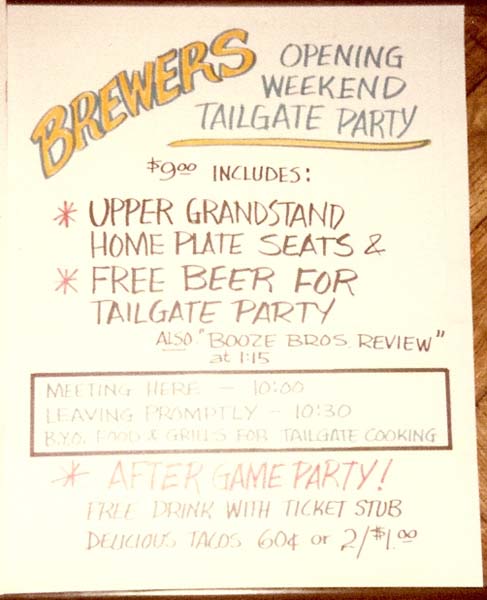 BREWERS
OPENING
WEEKEND
TAILGATE PARTY
$9.00 INCLUDES:
* UPPER GRANDSTAND
HOME PLATE SEATS &
* FREE BEER FOR
TAILGATE PARTY
ALSO "BOOZE BROS. REVIEW"
at 1:15
MEETING HERE - 10:00
LEAVING PROMPTLY - 10:30
B.Y.O. FOOD & GRILLS FOR TAILGATE COOKING
* AFTER GAME PARTY!
FREE DRINK WITH TICKET STUB
DELICIOUS TACOS 60¢ or 2/$1.00